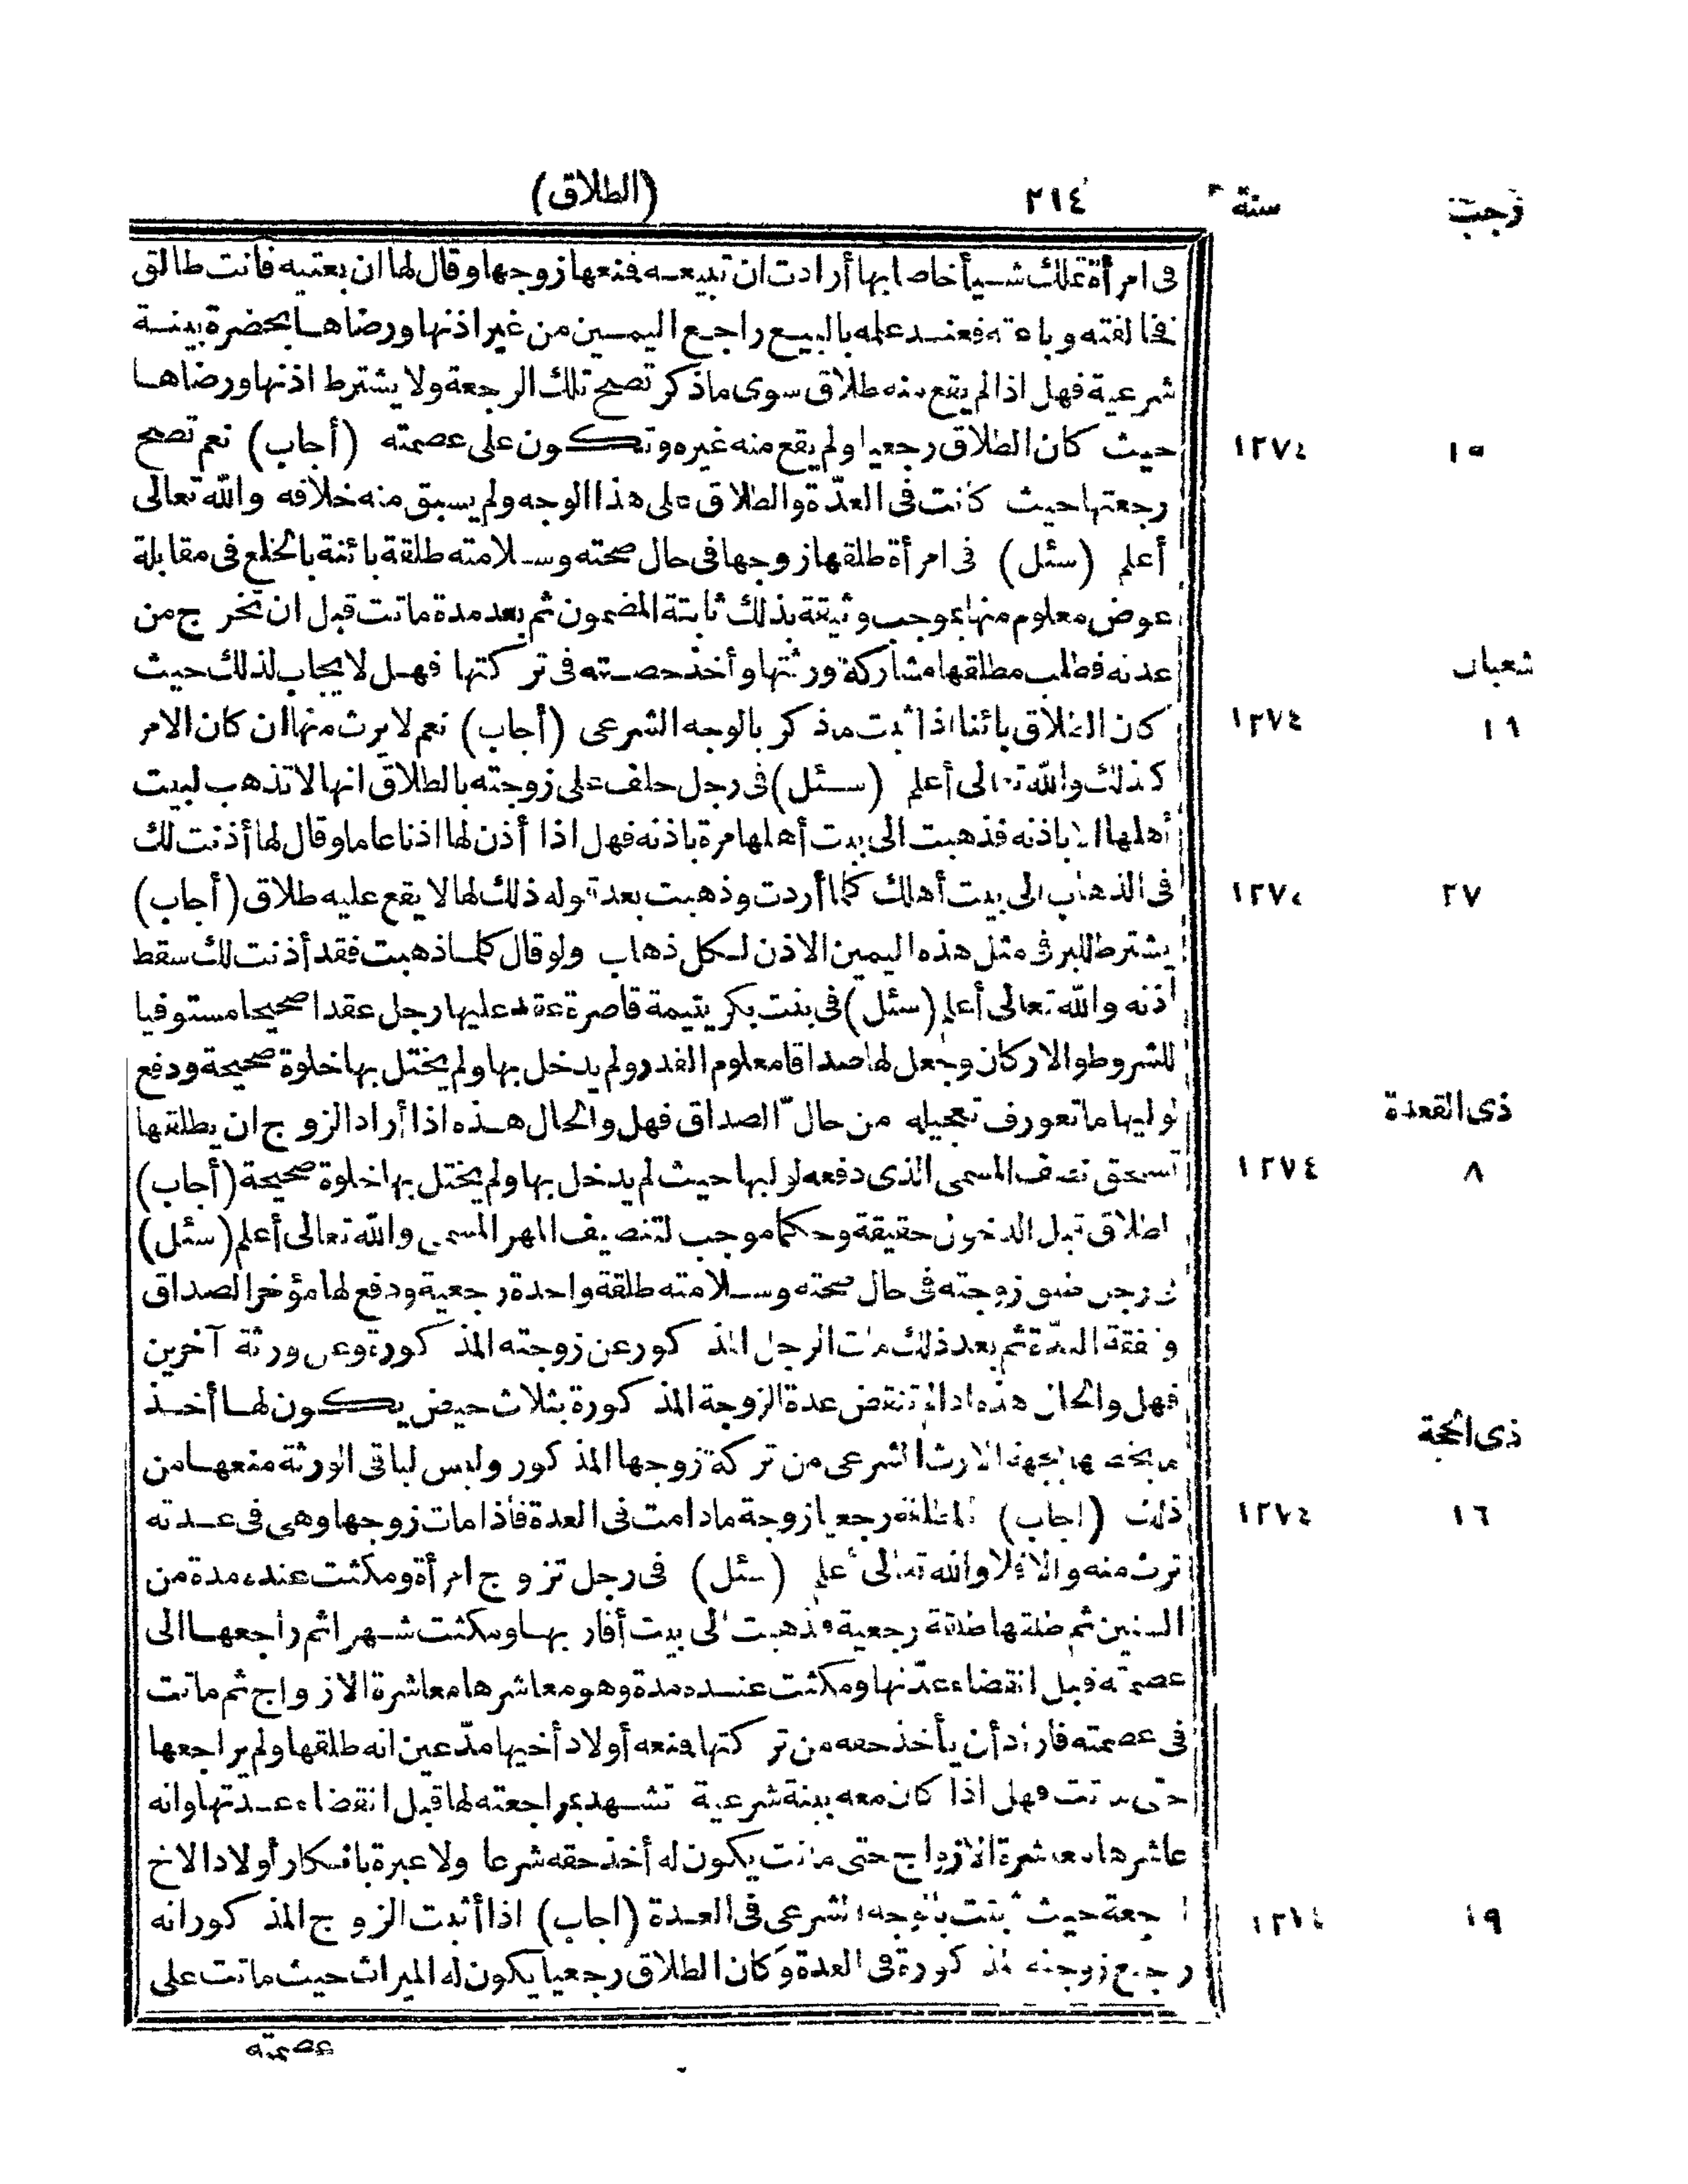 رجب سنة ٢١٤ (الطلاق)
فى امرأة تملك شيأ خاصا بها أرادت ان تبيعه فمنعها زوجها وقال لها ان بعتيه فانت طالق
فخالفته وباعته فعند علمه بالبيع راجع اليمين من غير اذنها ورضاها بحضرة بينة
شرعية فهل اذا لم يقع منه طلاق سوى ماذكر تصح تلك الرجعة ولا يشترط اذنها ورضاها
١٥ ١٢٧٤ حيث كان الطلاق رجعيا ولم يقع منه غيره وتكون على عصمته (أجاب) نعم تصح
رجعتها حيث كانت فى العدّة والطلاق على هذا الوجه ولم يسبق منه خلافه والله تعالى
أعلم (سئل) فى امرأة طلقها زوجها فى حال صحته وسلامته طلقة بائنة بالخلع فى مقابلة
عوض معلوم منها بموجب وثيقة بذلك ثابتة المضمون ثم بعد مدة ماتت قبل ان تخرج من
شعبان عدته فطلب مطلقها مشاركة ورثتها وأخذ حصته فى تركتها فهل لا يجاب لذلك حيث
١٩ ١٢٧٤ كان الطلاق بائنا اذا ثبت ماذكر بالوجه الشرعى (أجاب) نعم لا يرث منها ان كان الامر
كذلك والله تعالى أعلم (سئل) فى رجل حلف على زوجته بالطلاق انها لا تذهب لبيت
أهلها الا باذنه فذهبت الى بيت أهلها مرة باذنه فهل اذا أذن لها اذنا عاما وقال لها أذنت لك
٢٧ ١٢٧٤ فى الذهاب الى بيت أهلك كلما أردت وذهبت بعد قوله ذلك لها لا يقع عليه طلاق (أجاب)
يشترط للبر فى مثل هذه اليمين الاذن لكل ذهاب ولو قال كلما ذهبت فقد أذنت لك سقط
اذنه والله تعالى أعلم (سئل) فى بنت بكر يتيمة قاصرة عقد عليها رجل عقدا صحيحا مستوفيا
للشروط والاركان وجعل لها صداقا معلوم القدر ولم يدخل بها ولم يختل بها خلوة صحيحة ودفع
ذى القعدة لوليها ما تعورف تعجيله من حالّ الصداق فهل والحال هذه اذا أراد الزوج ان يطلقها
٨ ١٢٧٤ تستحق نصف المسمى الذى دفعه لوليها حيث لم يدخل بها ولم يختل بها خلوة صحيحة (أجاب)
الطلاق قبل الدخول حقيقة وحكما موجب لتنصيف المهر المسمى والله تعالى أعلم (سئل)
فى رجل طلق زوجته فى حال صحته وسلامته طلقة واحدة رجعية ودفع لها مؤخر الصداق
ونفقة العدّة ثم بعد ذلك مات الرجل المذكور عن زوجته المذكورة وعن ورثة آخرين
فهل والحال هذه اذا لم تنقض عدة الزوجة المذكورة بثلاث حيض يكون لها أخذ
ذى الحجة ما يخصها بجهة الارث الشرعى من تركة زوجها المذكور وليس لباقى الورثة منعها من
١٦ ١٢٧٤ ذلك (اجاب) المطلقة رجعيا زوجة مادامت فى العدة فاذا مات زوجها وهى فى عدته
ترث منه والا فلا والله تعالى أعلم (سئل) فى رجل تزوج امرأة ومكثت عنده مدة من
السنين ثم طلقها طلقة رجعية فذهبت الى بيت أقاربها ومكثت شهرا ثم راجعها الى
عصمته قبل انقضاء عدّتها ومكثت عنده مدة وهو معاشرها معاشرة الازواج ثم ماتت
فى عصمته فأراد أن يأخذ حقه من تركتها فمنعه أولاد أخيها مدّعين انه طلقها ولم يراجعها
حتى ماتت فهل اذا كان معه بينة شرعية تشهد بمراجعته لها قبل انقضاء عدتها وانه
عاشرها معاشرة الازواج حتى ماتت يكون له أخذ حقه شرعا ولا عبرة بانكار أولاد الاخ
١٩ ١٢٧٤ الرجعة حيث ثبتت بالوجه الشرعى فى العدة (اجاب) اذا أثبت الزوج المذكور انه
راجع زوجته المذكورة فى العدة وكان الطلاق رجعيا يكون له الميراث حيث ماتت على
عصمته